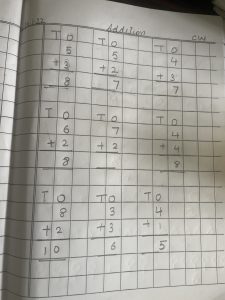 Addition CW
T O T O T O
5 5 4
+ 3 + 2 + 3
8 7 7
T O T O T O
6 7 4
+ 2 + 2 + 4
8 8
T O T O T O
8 3 4
+ 2 + 3 + 1
1 0 6 5